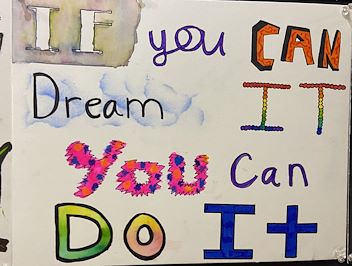 IF you CAN
Dream IT
You Can
DO IT